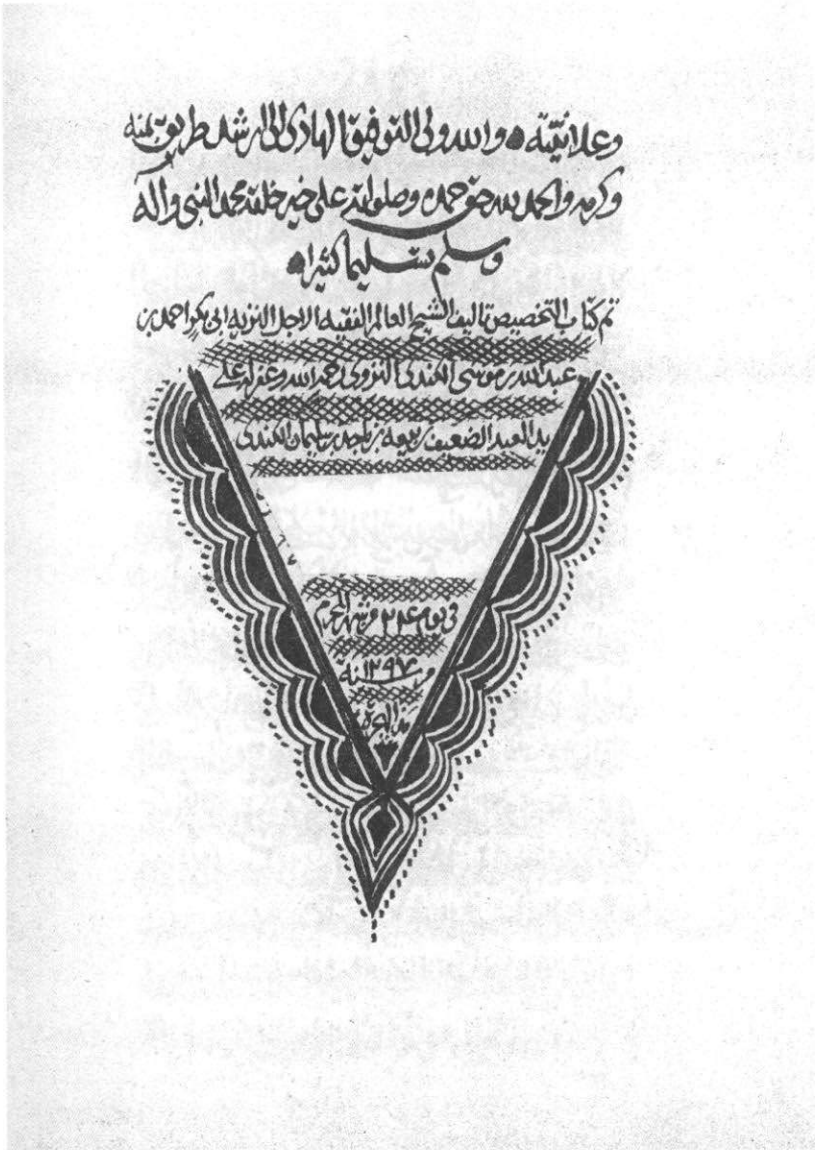 وعلانيته والله ولي التوفيق الهادي الى ارشد طريق بمنه
وكرمه والحمد لله حق حمده وصلواته على خير خلقه محمد النبي وآله
وسلم تسليما كثيرا
تم كتاب التخصيص تاليف الشيخ العالم الفقيه الاجل النزيه ابي بكر احمد بن
عبد الله بن موسى الكندي النزوي رحمه الله وغفر له على
يد العبد الضعيف ربيعه بن ماجد بن سليمان الكندي
في يوم ٢٤ من شهر المحرم
من سنة ١٢٩٧